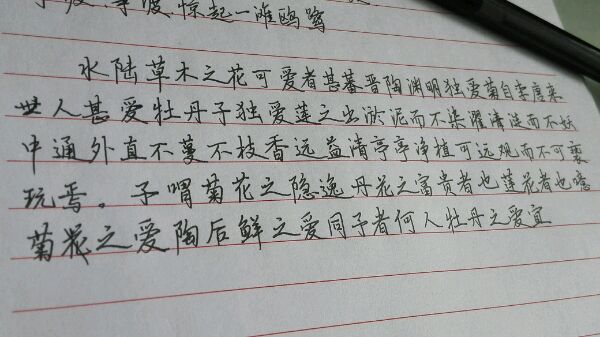 争渡，惊起一滩鸥鹭
水陆草木之花可爱者甚蕃晋陶渊明独爱菊自李唐来
世人甚爱牡丹予独爱莲之出淤泥而不染濯清涟而不妖
中通外直不蔓不枝香远益清亭亭净植可远观而不可亵
玩焉。予谓菊花之隐逸丹花之富贵者也莲花者也噫
菊花之爱陶后鲜之爱同予者何人牡丹之爱宜